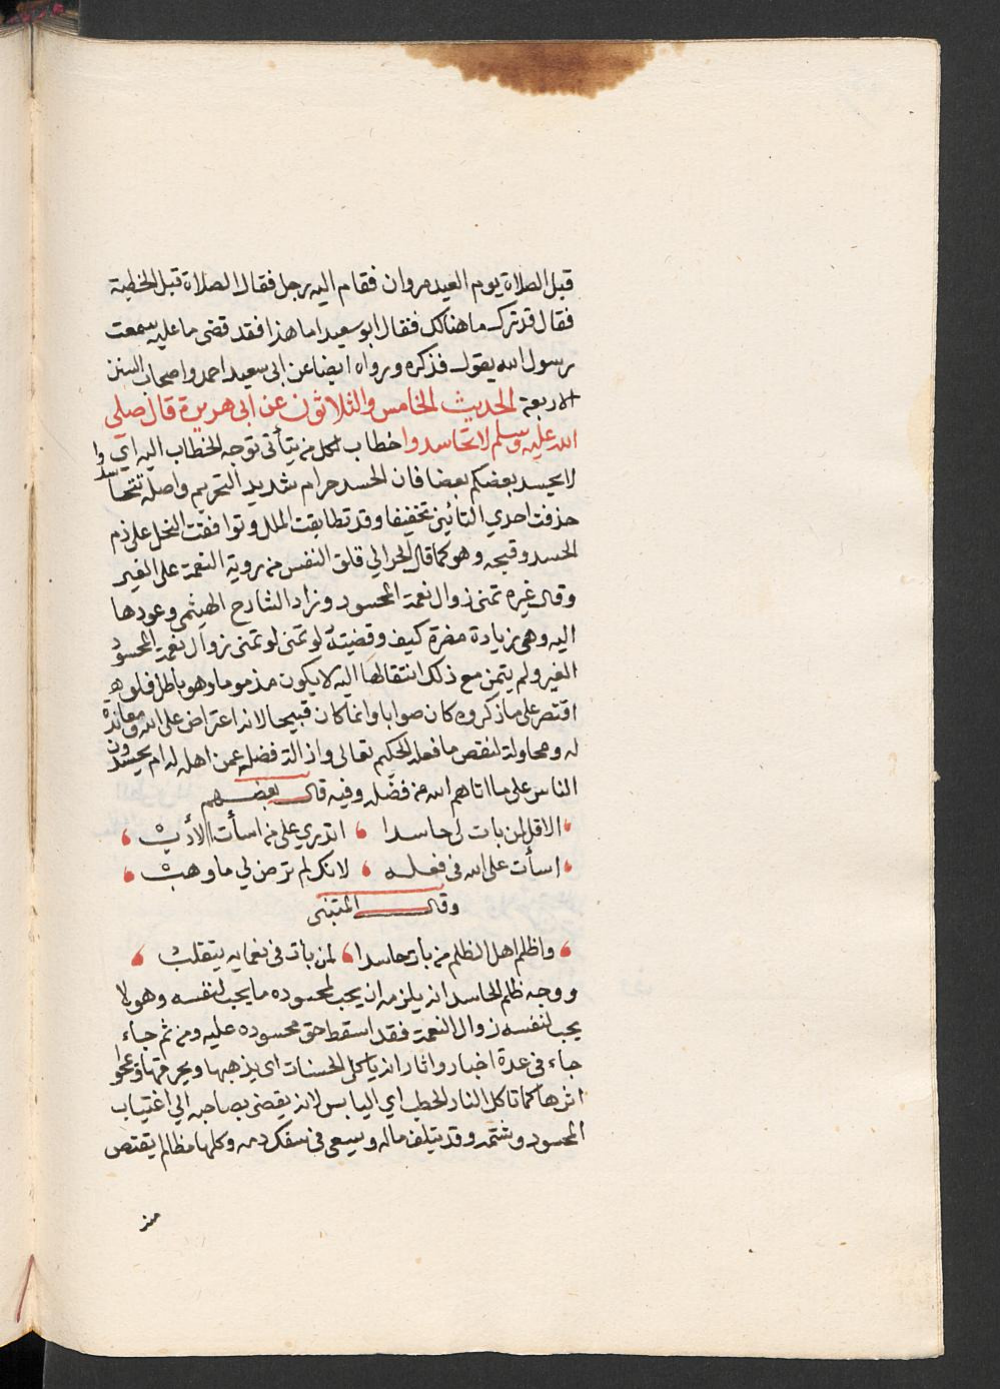 قبل الصلاة يوم العيد مروان فقام اليه رجل فقال الصلاة قبل الخطبة
فقال قد ترك ما هنالك فقال ابو سعيد اما هذا فقد قضى ما عليه سمعت
رسول الله يقول فذكره ورواه ايضا عن ابى سعيد احمد واصحاب السنن
الاربعة الحديث الخامس والثلاثون عن ابى هريرة قال صلى
الله عليه وسلم لا تحاسدوا خطاب لكل من يتأتى توجه الخطاب اليه اي
لا يحسد بعضكم بعضا فان الحسد حرام شديد التحريم واصله تتحاسدوا
حذفت احدي التائين تخفيفا وقد تطابقت الملل وتوافقت النحل على ذم
الحسد وقبحه وهو كما قال الحرالي قلق النفس من روية النعمة على الغير
وقال غيره تمنى زوال نعمة المحسود وزاد الشارح الهيثمى وعودها
اليه وهى زيادة مضرة كيف وقضيته لو تمنى لو تمنى زوال نعمة المحسود
الغير ولم يتمن مع ذلك انتقالها اليه لا يكون مذموما وهو باطل فلو
اقتصر على ما ذكروه كان صوابا وانما كان قبيحا لانه اعتراض على الله ومعاندة
له ومحاولة لنقص ما فعله الحكيم تعالى وازالة فضله عمن اهله له ام يحسدون
الناس على ما اتاهم الله من فضله وفيه قال بعضهم
الا قل لمن بات لى حاسدا ، اتدري على من اسأت الأدب ،
اسأت على الله فى فعله ، لانك لم ترض لي ما وهب ،
وقال المتبنى
واظلم اهل الظلم من بات حاسدا ، لمن بات فى نعمايه يتقلب ،
ووجه ظلم الحاسد انه يلزمه ان يحب لمحسوده ما يحب لنفسه وهو لا
يحب لنفسه زوال النعمة فقد اسقط حق محسوده عليه ومن ثم جاء
جاء فى عدة اخبار واثار انه ياكل الحسنات اى يذهبها ويحرقها ويمحوا
اثرها كما تاكل النار الحطب اي اليابس لانه يفضى بصاحبه الى اغتياب
المحسود وشتمه وقد يتلف ماله ويسعى فى سفك دمه وكلها مظالم يقتص
منه